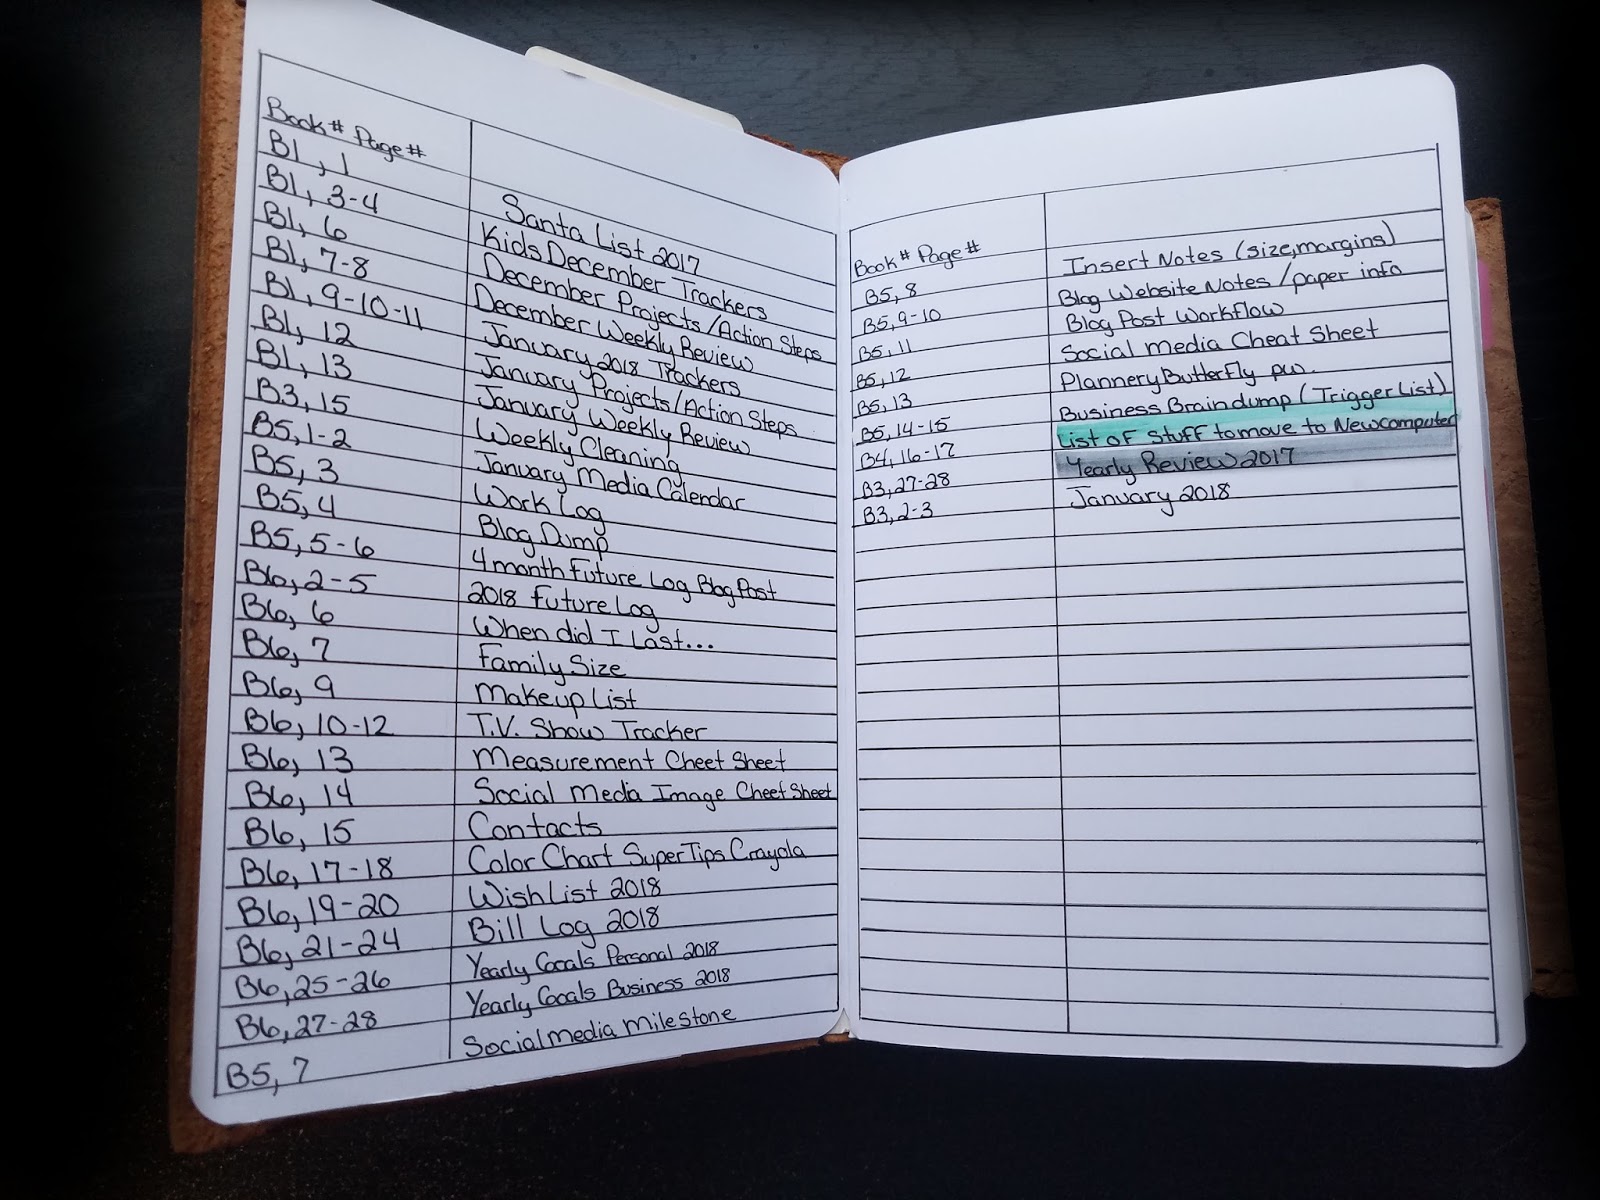 Book# Page#
B1, 1 Santa List 2017
B1, 3-4 Kids December Trackers
B1, 6 December Projects/Action Steps
B1, 7-8 December Weekly Review
B1, 9-10-11 January 2018 Trackers
B1, 12 January Projects/Action Steps
B1, 13 January Weekly Review
B3, 15 Weekly Cleaning
B5, 1-2 January Media Calendar
B5, 3 Work Log
B5, 4 Blog Dump
B5, 5-6 4 month future Log Blog Post
B6, 2-5 2018 Future Log
B6, 6 When did I Last...
B6, 7 Family Size
B6, 9 Makeup List
B6, 10-12 T.V. Show Tracker
B6, 13 Measurement Cheet Sheet
B6, 14 Social Media Image Cheet Sheet
B6, 15 Contacts
B6, 17-18 Color Chart SuperTips Crayola
B6, 19-20 Wish List 2018
B6, 21-24 Bill Log 2018
B6, 25-26 Yearly Goals Personal 2018
B6, 27-28 Yearly Goals Business 2018
B5, 7 Social media milestone
Book# Page#
B5, 8 Insert Notes (size, margins)
B5, 9-10 Blog Website Notes/paper info
B5, 11 Blog Post Workflow
B5, 12 Social Media Cheat Sheet
B5, 13 PlanneryButterfly pw.
B5, 14-15 Business Braindump (Trigger List)
B4, 16-17 List of Stuff to move to New computer
B3, 27-28 Yearly Review 2017
B3, 2-3 January 2018